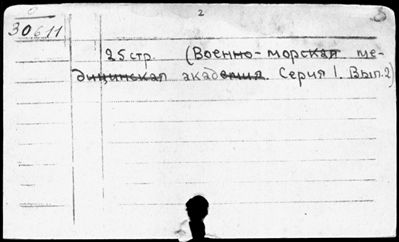 2
30611
25 стр. (Военно-морская ме-
дицинская академия. Серия 1. Вып. 2)